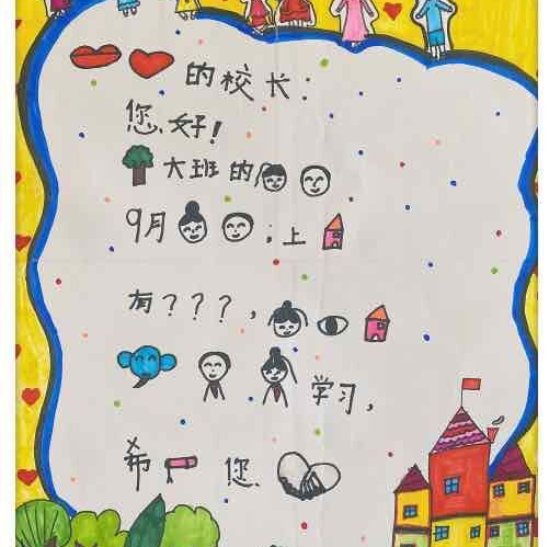 的校长:
您好!
大班的
9月;上
有???,
学习,
希 您